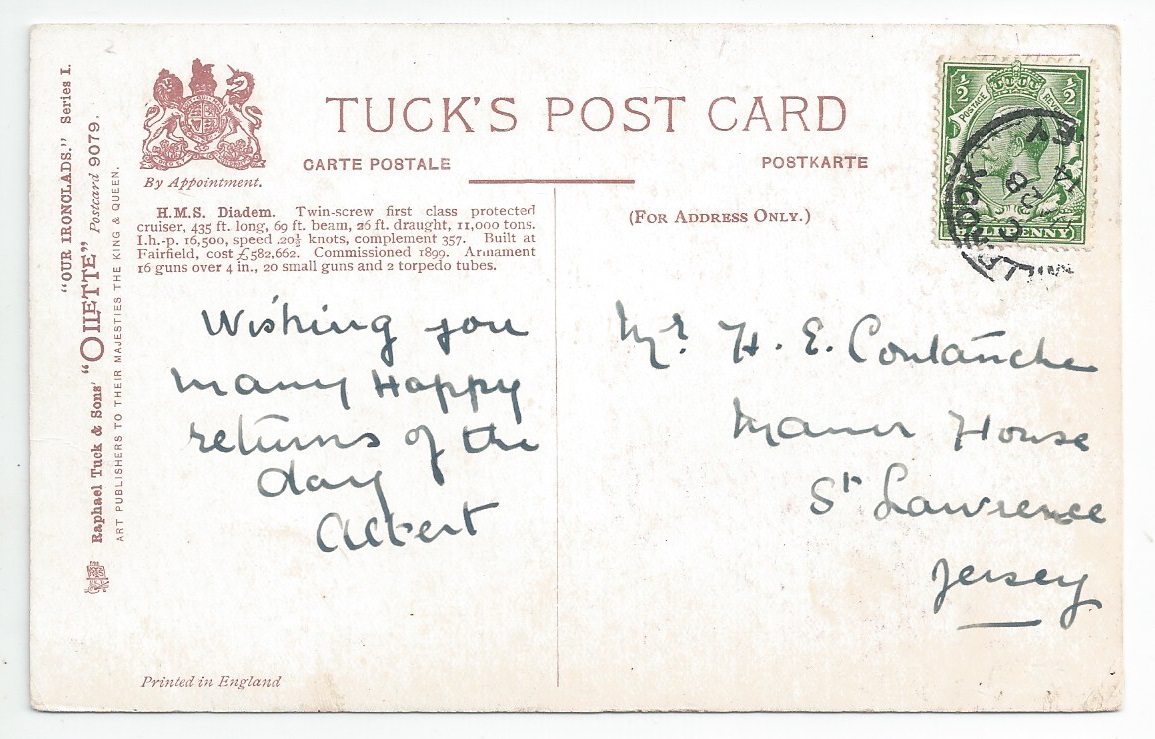 "OUR IRONCLADS." Series I.
Raphael Tuck & Sons' "OILETTE" Postcard 9079.
ART PUBLISHERS TO THEIR MAJESTIES THE KING & QUEEN.
By Appointment.
TUCK'S POST CARD
CARTE POSTALE
POSTKARTE
H.M.S. Diadem. Twin-screw first class protected
cruiser, 435 ft. long, 69 ft. beam, 26 ft. draught, 11,000 tons.
I.h.-p. 16,500, speed 20½ knots, complement 357. Built at
Fairfield, cost £582,662. Commissioned 1899. Armament
16 guns over 4 in., 20 small guns and 2 torpedo tubes.
Wishing you
many Happy
returns of the
day
Albert
Printed in England
(FOR ADDRESS ONLY.)
½ ½
POSTAGE
Mr. H. E. Coutanche
Manor House
St Lawrence
Jersey